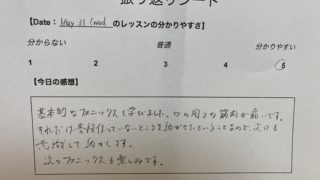 振り返りシート
【Date： May 31 (Wed) のレッスンの分かりやすさ】
分からない 普通 分かりやすい
1 2 3 4 5
【今日の感想】
基本的なフォニックスを学びました。口の周りの筋肉が痛いです。
それだけ普段使っていないところを動かせたということなので、次回も
意識して動かします。
次のフォニックスも楽しみです。